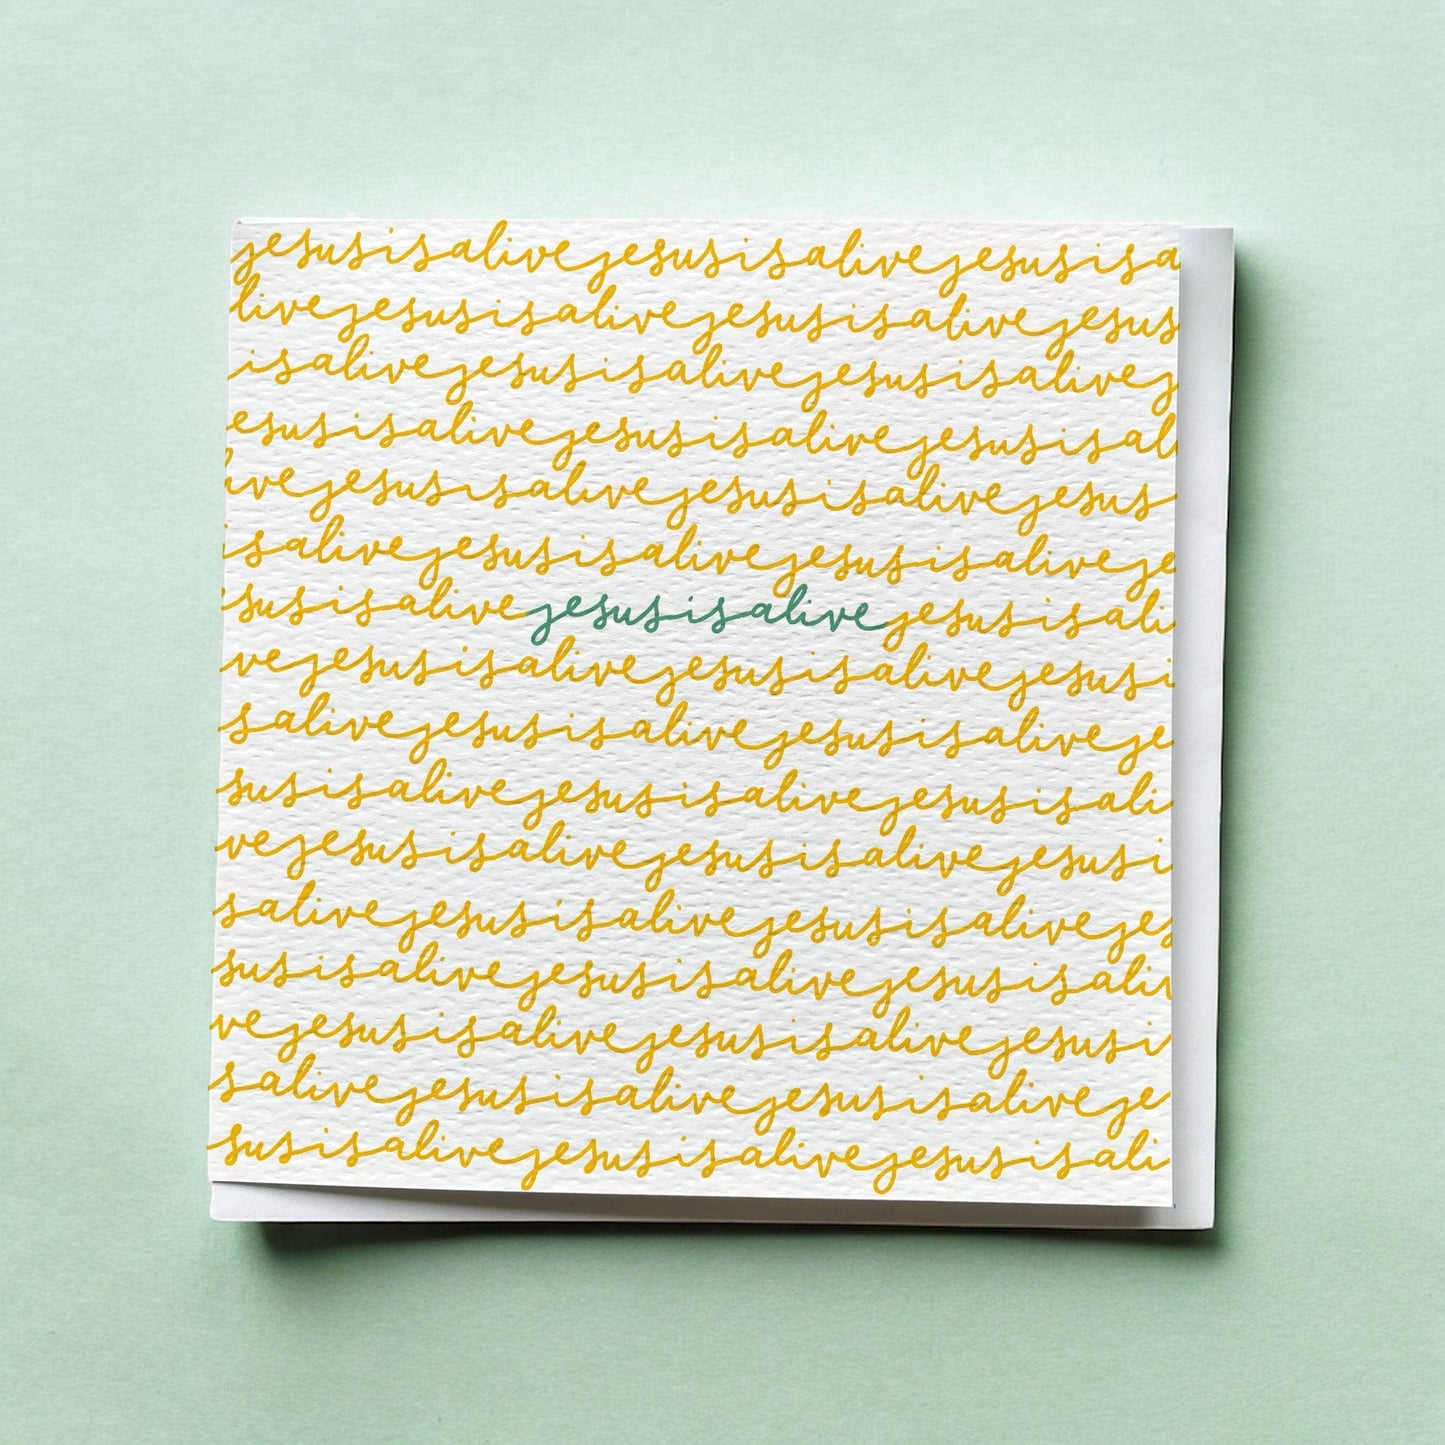 jesusisalivejesusisalivejesusisa
livejesusisalivejesusisalivejesus
isalivejesusisalivejesusisalivej
esusisalivejesusisalivejesusisal
ivejesusisalivejesusisalivejesus
isalivejesusisalivejesusisaliveje
susisalivejesusisalivejesusisali
vejesusisalivejesusisalivejesusi
salivejesusisalivejesusisaliveje
susisalivejesusisalivejesusisali
vejesusisalivejesusisalivejesusi
salivejesusisalivejesusisalivejes
susisalivejesusisalivejesusisaliv
vejesusisalivejesusisalivejesusi
salivejesusisalivejesusisaliveje
susisalivejesusisalivejesusisali